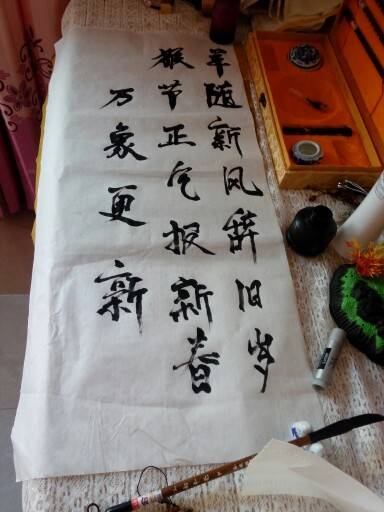 羊随新风辞旧岁
猴节正气报新春
万象更新